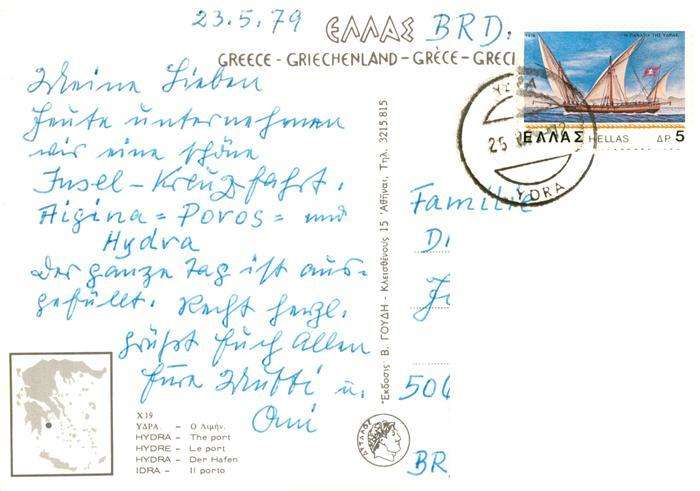 23.5.79 ΕΛΛΑΣ BRD.
GREECE - GRIECHENLAND - GRÈCE - GRECI
Meine Lieben
Heute unternehmen
wir eine schöne
Insel-Kreuzfahrt.
Aigina = Poros = und
Hydra
Der ganze Tag ist aus-
gefüllt. Recht herzl.
grüßt Euch Allen
Eure Mutti u.
Omi
Χ19
ΥΔΡΑ. – Ο Λιμήν.
HYDRA – The port
HYDRE – Le port
HYDRA – Der Hafen
IDRA – Il porto
Ἔκδοσις Β. ΓΟΥΔΗ - Κλεισθένους 15 Ἀθῆναι, Τηλ. 3215.815
ΕΛΛΑΣ HELLAS ΔΡ. 5
25
YDRA
Familie
D
J
506
BR